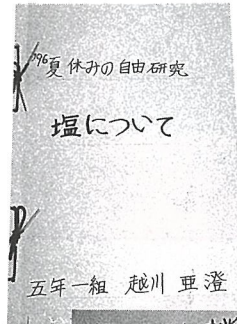 '96夏休みの自由研究
塩について
五年一組 越川 亜澄